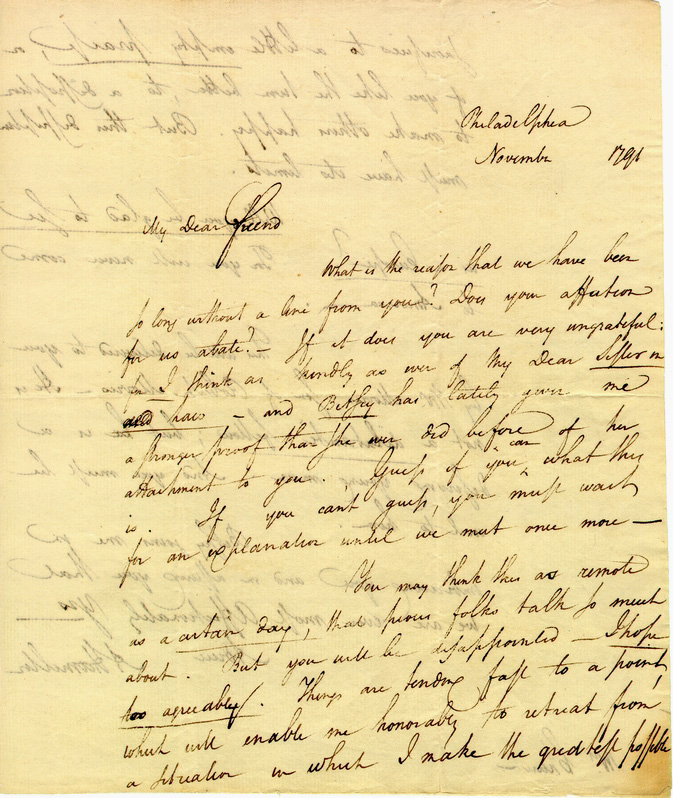 Philadelphia
November 1794
My Dear friend
What is the reason that we have been
so long without a line from you? Does your affection
for us abate?— If it does you are very ungrateful;
for I think as kindly as ever of My Dear Sister in
law — and Betsey has lately given me
a stronger proof than she ever did before of her
attachment to you. Guess if you can, what this
is. If you cant guess, you must wait
for an explanation until we meet once more—
You may think this as remote
as a certain day, that pious folks talk so much
about. But you will be disappointed — I hope
too agreeably. Things are tending fast to a point,
which will enable me honorably to retreat from
a situation in which I make the greatest possible